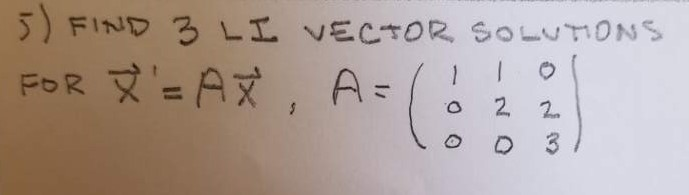 5) FIND 3 LI VECTOR SOLUTIONS
FOR X⃗' = AX⃗ , A = ( 1 1 0
0 2 2
0 0 3 )